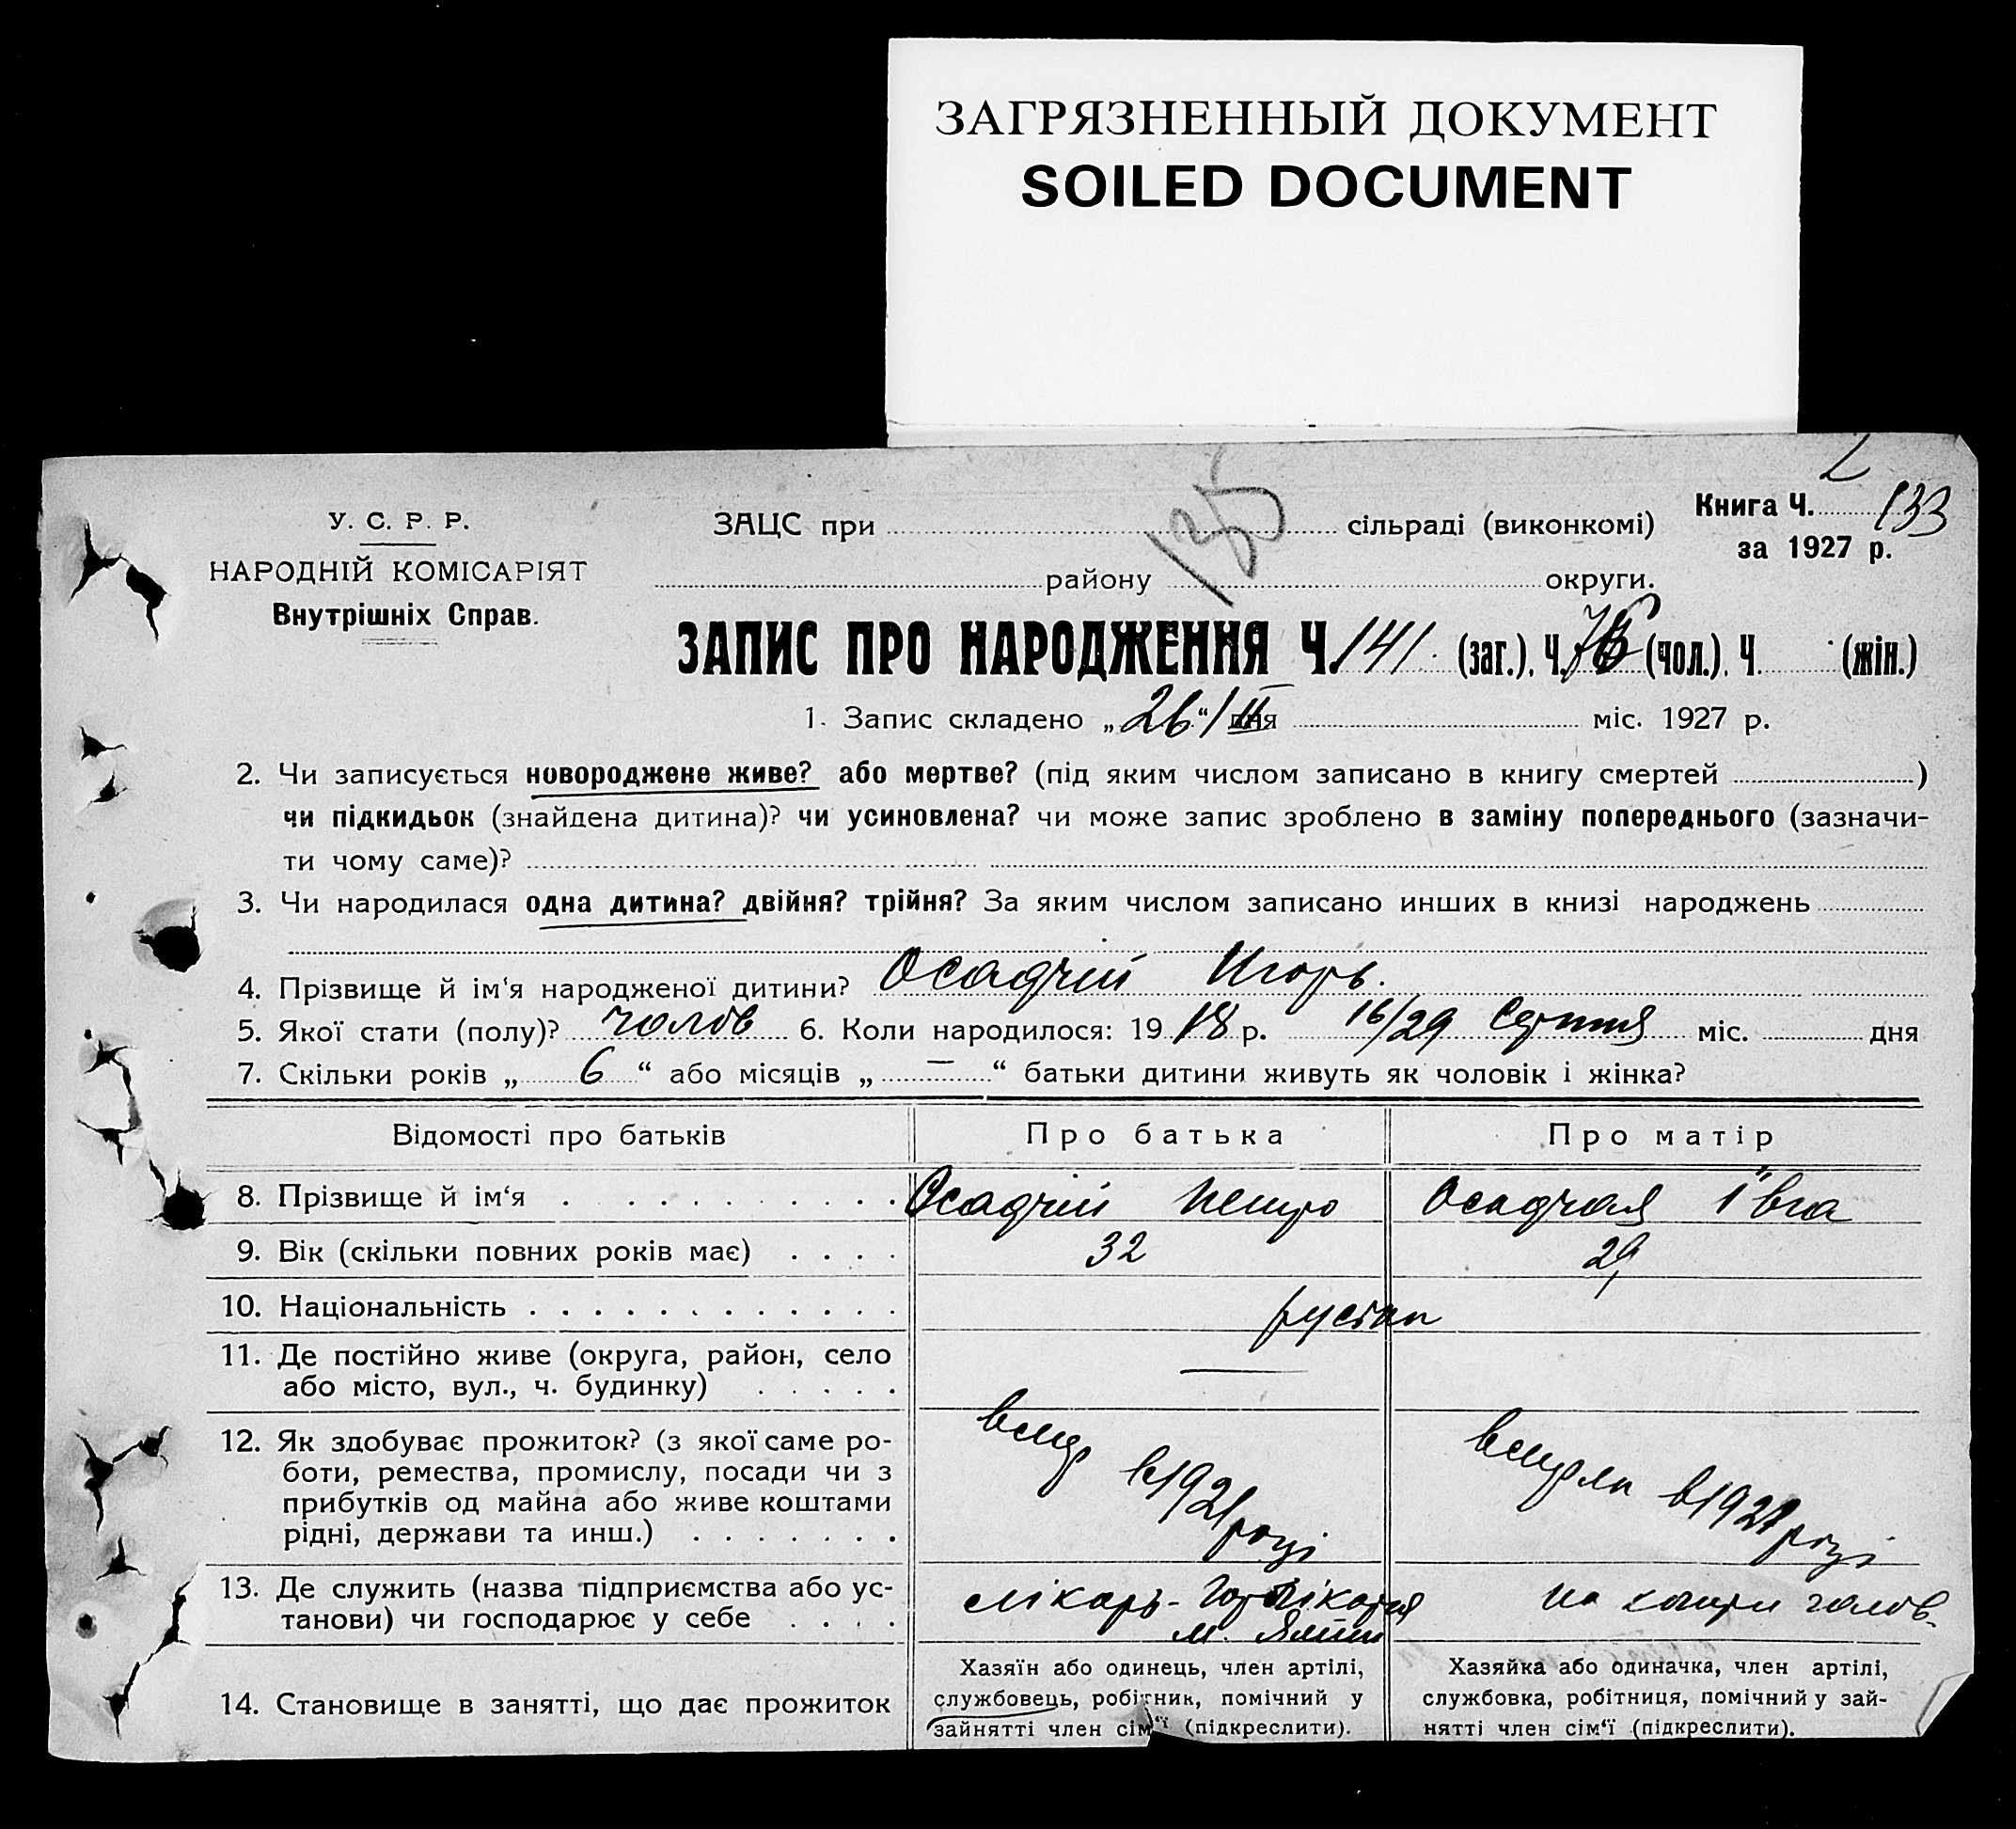 ЗАГРЯЗНЕННЫЙ ДОКУМЕНТ
SOILED DOCUMENT
У. С. Р. Р.
НАРОДНІЙ КОМІСАРІЯТ
Внутрішніх Справ.
135
ЗАЦС при сільраді (виконкомі)
району округи.
Книга Ч. 133
за 1927 р.
ЗАПИС ПРО НАРОДЖЕННЯ Ч. 141 (заг.), Ч. (чол.), Ч. (жін.)
1. Запис складено „26“/II дня міс. 1927 р.
2. Чи записується новороджене живе? або мертве? (під яким числом записано в книгу смертей )
чи підкидьок (знайдена дитина)? чи усиновлена? чи може запис зроблено в заміну попереднього (зазначи-
ти чому саме)?
3. Чи народилася одна дитина? двійня? трійня? За яким числом записано инших в книзі народжень
4. Прізвище й ім‘я народженої дитини? Осадчий Игорь.
5. Якої стати (полу)? чолов 6. Коли народилося: 1918 р. 16/29 Серпня міс. дня
7. Скільки років „ 6 “ або місяців „ — “ батьки дитини живуть як чоловік і жінка?
Відомості про батьків Про батька Про матір
8. Прізвище й ім‘я Осадчий Петро Осадчая Ївга
9. Вік (скільки повних років має) 32 29
10. Національність
11. Де постійно живе (округа, район, село
або місто, вул., ч. будинку) —
12. Як здобуває прожиток? (з якої саме ро-
боти, ремества, промислу, посади чи з
прибутків од майна або живе коштами
рідні, держави та инш.)
вмер в 1921 році
вмерла в 1921 році
13. Де служить (назва підприємства або ус-
танови) чи господарює у себе
лікарь-
м.
на кошти чолов.
14. Становище в занятті, що дає прожиток
Хазяїн або одинець, член артілі,
службовець, робітник, помічний у
зайнятті член сім‘ї (підкреслити).
Хазяйка або одиначка, член артілі,
службовка, робітниця, помічний у зай-
нятті член сім‘ї (підкреслити).